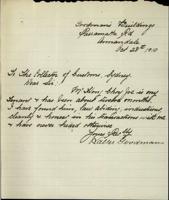 Goodman's Buildings
Parramatta Rd
Annandale
Oct 28th 1910
To The Collector of Customs, Sydney.
Dear Sir.
Choy Joe is my
tenant & has been about twelve months.
I have found him, law abiding, industrious
steady & honest in his transactions with me
& have never heard otherwise
Yours
Walter Goodman